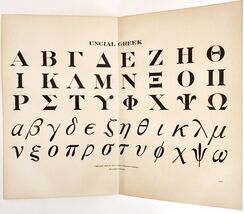 UNCIAL GREEK
Α Β Γ Δ Ε Ζ Η Θ
Ι Κ Λ Μ Ν Ξ Ο Π
Ρ Σ Τ Υ Φ Χ Ψ Ω
α β γ δ ε ζ η θ ι κ λ μ
ν ξ ο π ρ σ τ υ φ χ ψ ω